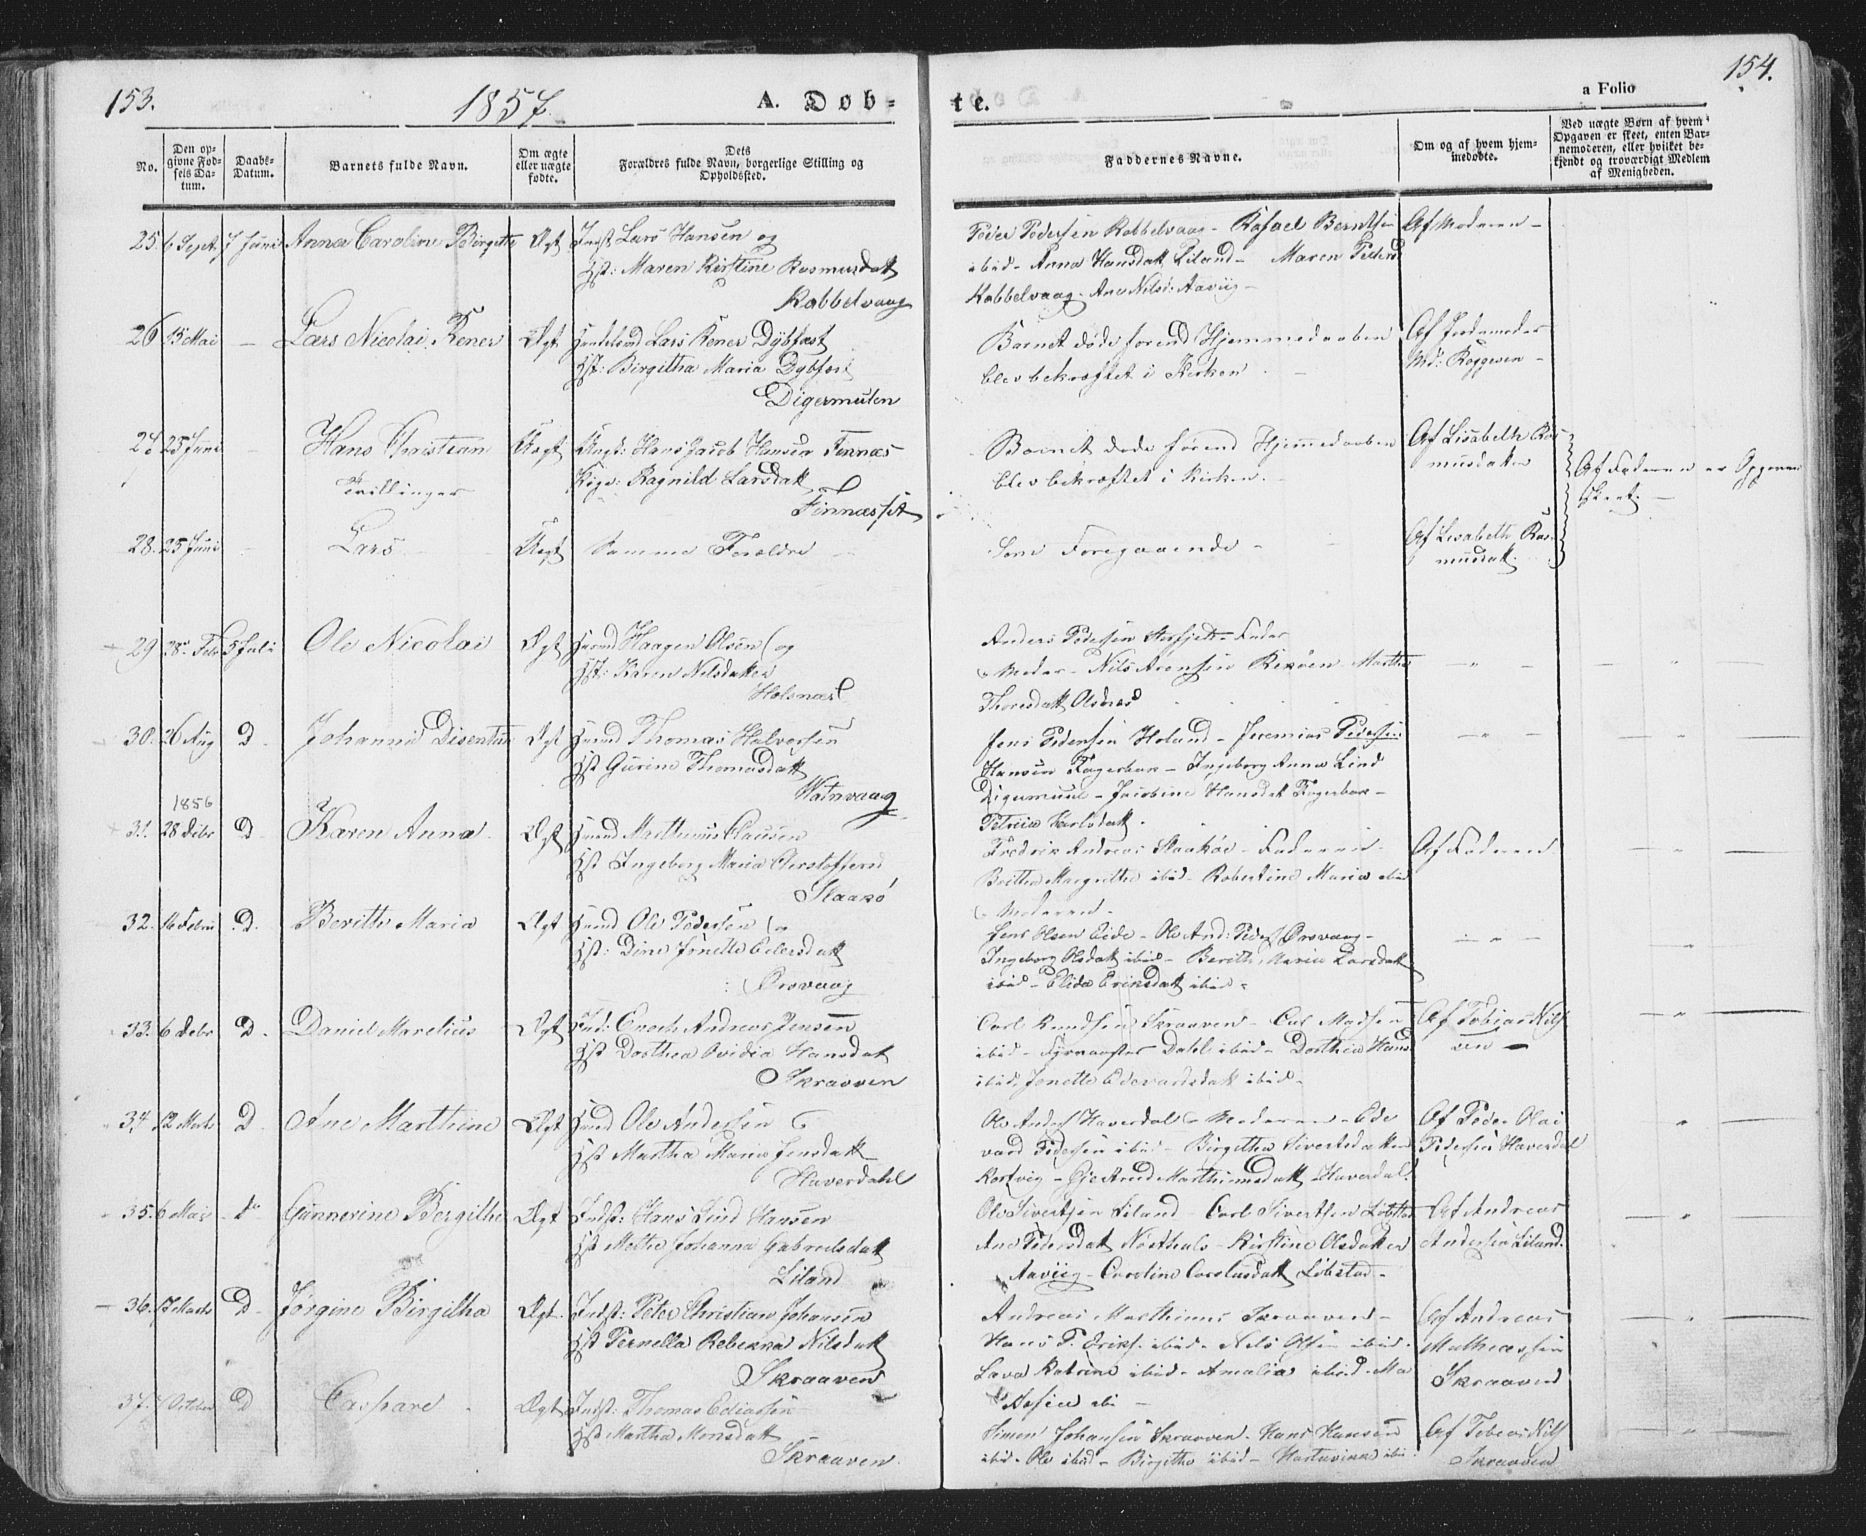 153.
1857.
A. Dob-
te.
a Folio
154.
No.
Den op-
givne Fød-
sels Da-
tum.
Daabs-
Datum.
Barnets fulde Navn.
Om ægte
eller uægte
fødte.
Dets
Forældres fulde Navn, borgerlige Stilling og
Opholdssted.
Faddernes Navne.
Om og af hvem hjem-
medøbte.
Ved uægte Børn af hvem
Opgaven er skeet, enten Bar-
nemoderen, eller hvilket be-
kjendt og troværdigt Medlem
af Menigheden.
25. 6 Sept. 7 Juni Anna Caroline Birgitte Ægt Indst Lars Hansen og
Hst: Maren Kirstine Rasmusdatt
Rabbelvaag
Peder Pedersen Rabbelvaag - Rafael Berntsen
ibid - Anna Hansdatt Liland - Maren Peders
Rabbelvaag. Ane Nilsd: Aaviig -
Af Moderen -
26 15 Mai - Lars Nicolai Rener Ægt Handelsmd Lars Rener Dybfest
Hst: Birgitha Maria Dybfest
Digermulen
Barnet døde forend Hjemmedaaben
blev bekræftet i Kirken. -
Af Jordemoder
Md: Roggesen -
27 25 Juni - Hans Christian Uægt Ungk: Hans Jacob Hansen Finnæs
Tvillinger
Pige: Ragnild Larsdatt
Finnæsset
Barnet døde førend Hjemmedaaben
blev bekræftet i Kirken. -
Af Lisabeth Ras-
musdatter
Af Faderen er Opgaven
skeet. -
28. 25 Juni - Lars Uægt Samme Forældre -
Som Foregaaende -
Af Lisabeth Ras-
musdatt.
29 28 Febr 5 Juli Ole Nicolai Ægt Huusmd Haagen Olsen og
Hst: Karen Nilsdatter
Holsnæs
Anders Pedersen - Fader
Moder - Nils Arensen Rekøen Martha
Thoresdatt Olsnæs
30. 26 Aug D. Johannes Disentun Ægt Huusmd Thomas Halversen
Hst Gurine Thomasdatt
Watnvaag
Jens Pedersen Holand - Jeremias Pedersen
Hansen Fagerbak - Ingeborg Anna Lind
Digermuul - Jacobine Hansdat Fagerbak -
Petrica Karlsdatt
1856
31. 28 Debr D Karen Anna Ægt Huusmd Marthinus Clausen
Hst Ingeborg Maria Christoffersd
Skaarø
Fredrik Andreas Skaarøe - Faderen -
Britha Margrethe ibid - Robertine Maria ibid
Moderen -
Af Faderen
32. 16 Febru D. Berithe Maria Ægt Huusmd Ole Pedersen og
Hst: Dine Jonette Edersdatt
Ørsvaag
Jens Olsen Eide - Ole And: Peders Ørsvaag -
Ingeborg Olsdatt ibid - Berith Maria Larsdatt
ibid - Elida Eriksdatt ibid -
33. 6 Debr D. Daniel Marelius Ægt Ind: Enoch Andreas Jensen
Hst Dorthea Ovidia Hansdat
Skraaven
Carl Knudsen Skraaven - Carl Madsen
ibid - Fyrvagter Dahl ibid - Dorthea Hans
ibid, Jonette Edevardsdatt ibid -
Af Tobias Nils
34. 12 Marts D Ane Marthine Ægt Huusmd Ole Andersen og
Hst Martha Maria Jensdatt
Haverdahl
Ole Anders Haverdal - Moderen - Ede
vard Pedersen ibid - Birgitha Sivertsdatter
Rørtvig - Marthinusdatt Haverdal.
Af Peder Olai
Pedersen Haverdal
35. 6 Mai do Gunnerine Bergithe Ægt Indst: Hans Lind Hansen
Hst Mette Johanna Gabrielsdatt
Liland
Ole Sivertsen Liland - Carl Sivertsen Løbstad
Ane Pedersdat - Kirstine Olsdatter
Aaviig - Caroline Carolusdatt Løbstad -
Af Andreas
Andersen Liland.
36. 17 Marts D Jørgine Birgitha Ægt Indst: Peter Christian Johansen
Hst Pernella Rebekka Nilsdatt
Skraaven
Andreas Mathisen Skraaven -
Hans P. Eriks. ibid - Nils Olsen ibid -
Lava Katrine ibid - Amalia ibid - Ma
Af Andreas
Matheassen
Skraaven
37. 7 October D Caspare Ægt Indst: Thomas Eliassen
Hst Martha Monsdatt
Skraaven.
Simon Johansen Skraaven. Hans Hansen
ibid - Ole ibid - Birgitha ibid - ibi
Af Tobias Nils
Skraaven